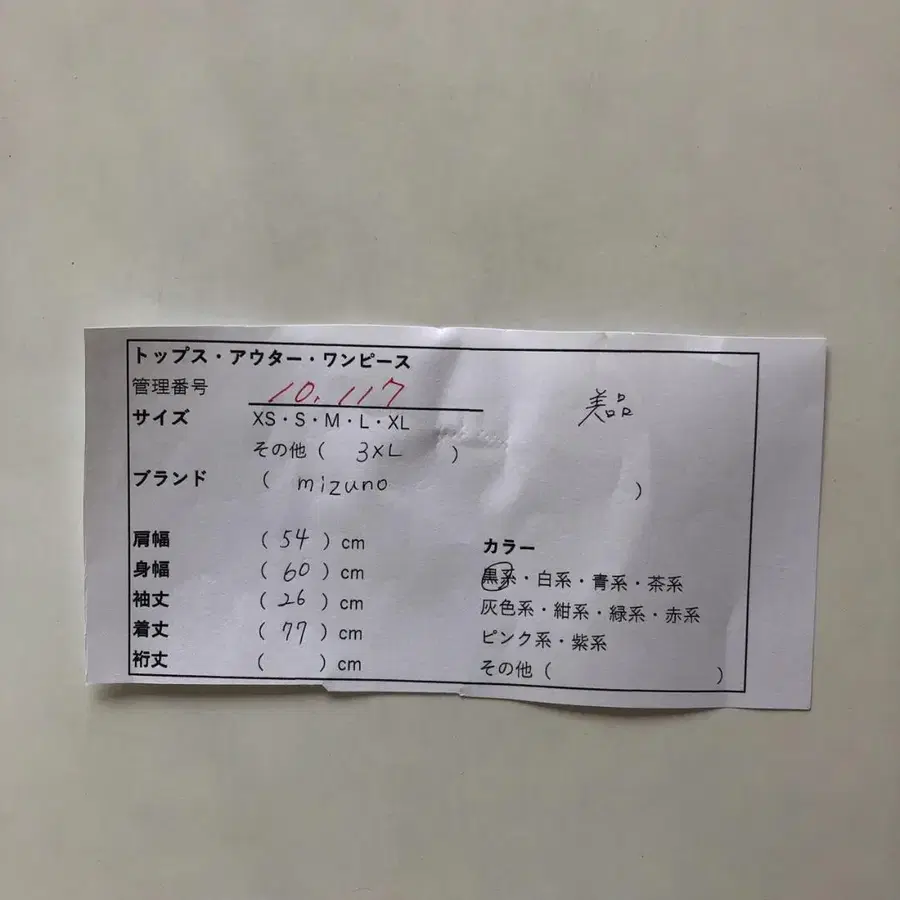 トップス・アウター・ワンピース
管理番号 10,117
サイズ XS・S・M・L・XL
美品
その他（ 3XL ）
ブランド （ mizuno ）
肩幅 （ 54 ）cm
身幅 （ 60 ）cm
袖丈 （ 26 ）cm
着丈 （ 77 ）cm
裄丈 （ ）cm
カラー
黒系・白系・青系・茶系
灰色系・紺系・緑系・赤系
ピンク系・紫系
その他（ ）